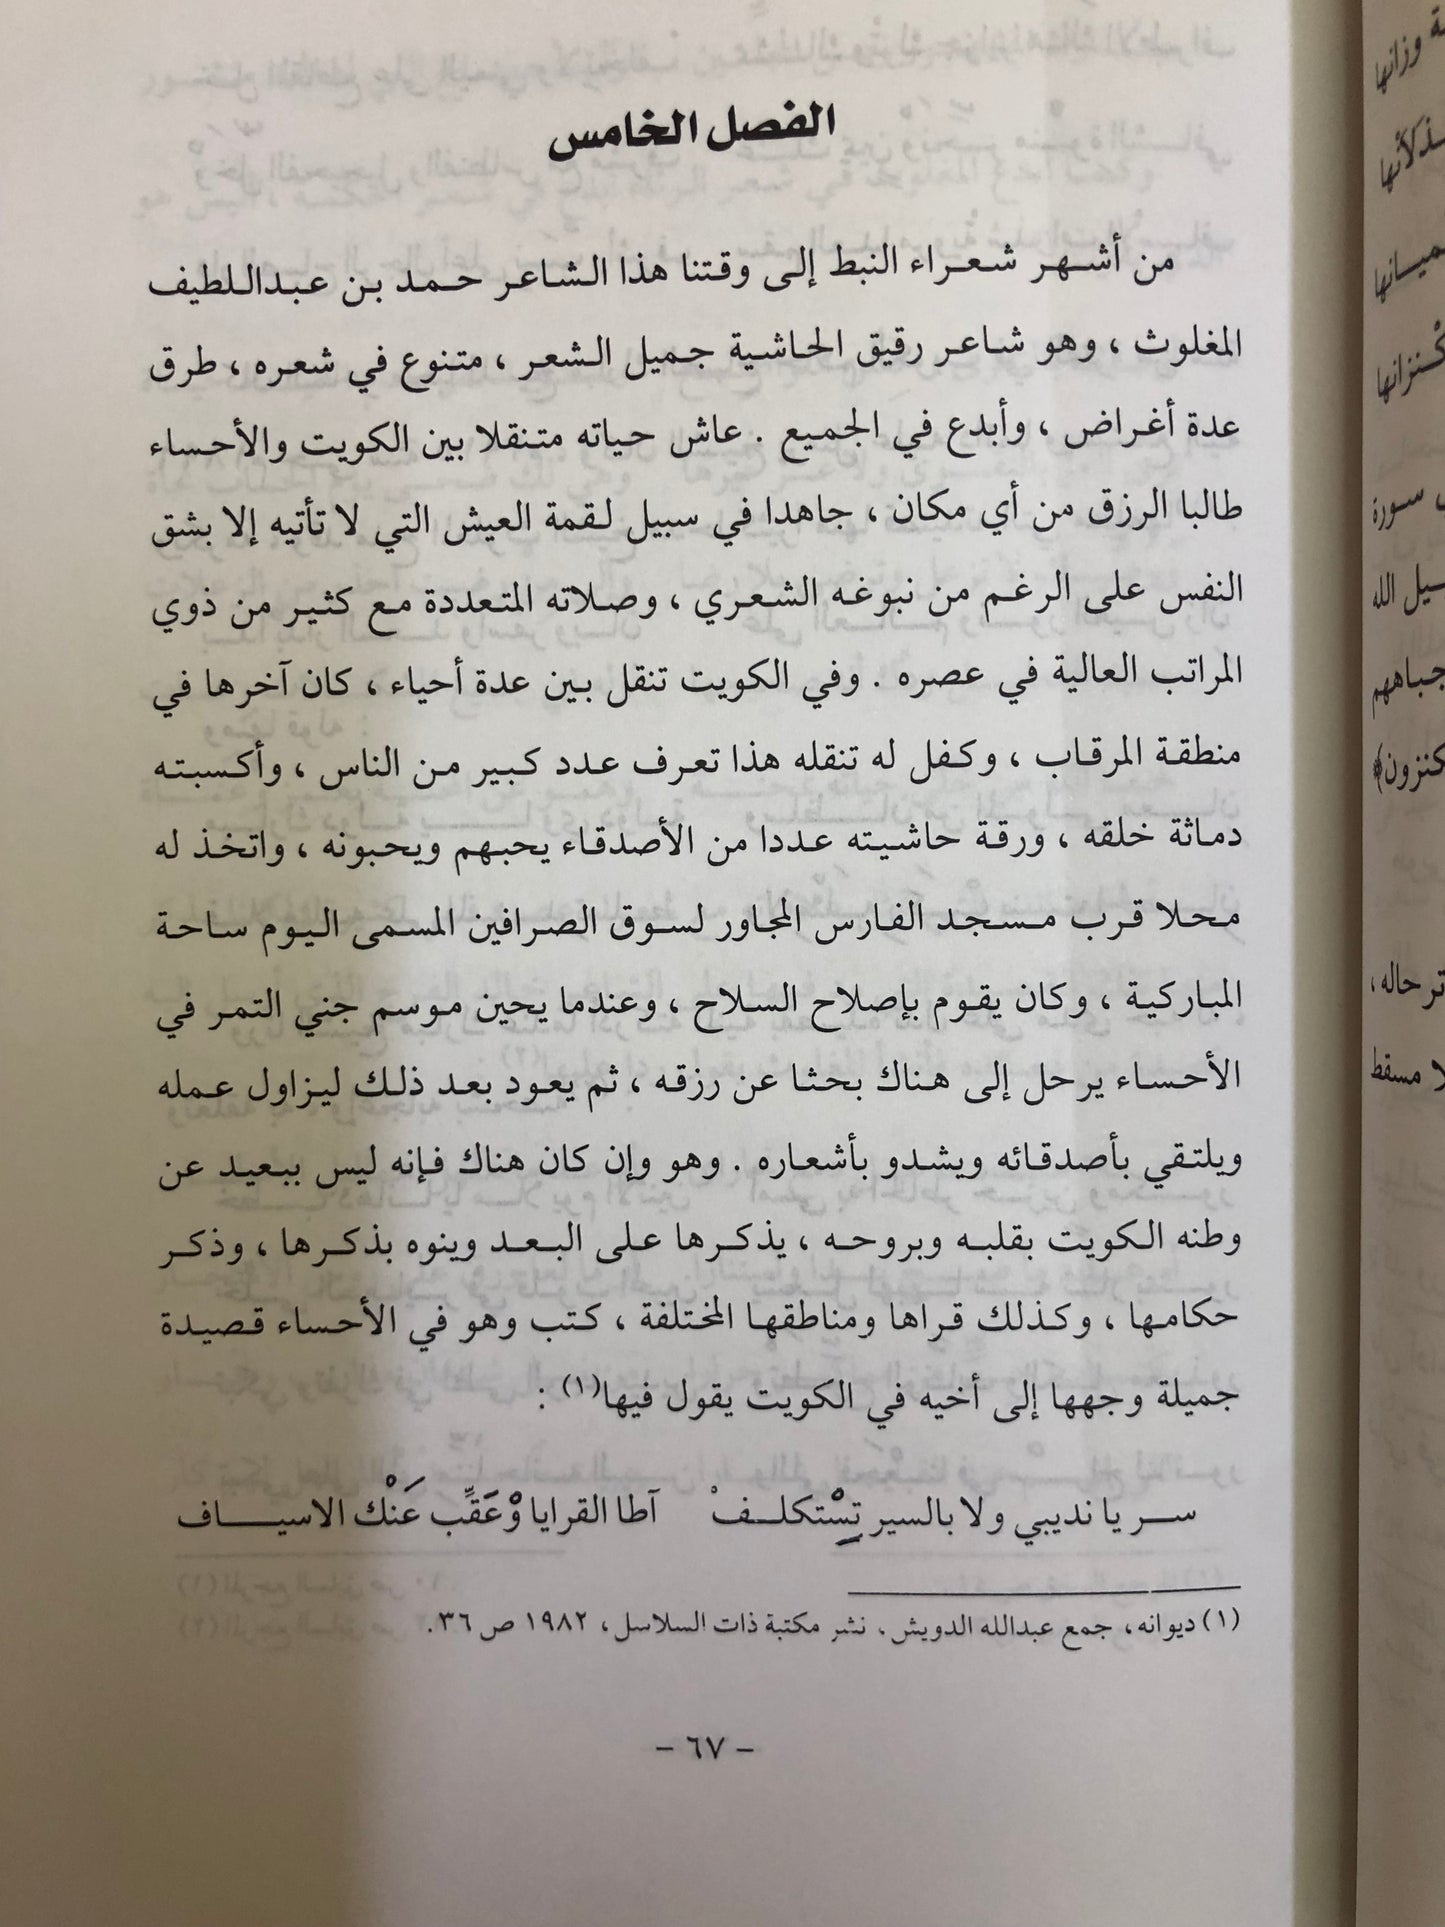 الفصل الخامس
من أشهر شعراء النبط إلى وقتنا هذا الشاعر حمد بن عبداللطيف
المغلوث ، وهو شاعر رقيق الحاشية جميل الشعر ، متنوع في شعره ، طرق
عدة أغراض ، وأبدع في الجميع . عاش حياته متنقلا بين الكويت والأحساء
طالبا الرزق من أي مكان ، جاهدا في سبيل لقمة العيش التي لا تأتيه إلا بشق
النفس على الرغم من نبوغه الشعري ، وصلاته المتعددة مع كثير من ذوي
المراتب العالية في عصره . وفي الكويت تنقل بين عدة أحياء ، كان آخرها في
منطقة المرقاب ، وكفل له تنقله هذا تعرف عدد كبير من الناس ، وأكسبته
دماثة خلقه ، ورقة حاشيته عددا من الأصدقاء يحبهم ويحبونه ، واتخذ له
محلا قرب مسجد الفارس المجاور لسوق الصرافين المسمى اليوم ساحة
المباركية ، وكان يقوم بإصلاح السلاح ، وعندما يحين موسم جني التمر في
الأحساء يرحل إلى هناك بحثا عن رزقه ، ثم يعود بعد ذلك ليزاول عمله
ويلتقي بأصدقائه ويشدو بأشعاره . وهو وإن كان هناك فإنه ليس ببعيد عن
وطنه الكويت بقلبه وبروحه ، يذكرها على البعد وينوه بذكرها ، وذكر
حكامها ، وكذلك قراها ومناطقها المختلفة ، كتب وهو في الأحساء قصيدة
جميلة وجهها إلى أخيه في الكويت يقول فيها(١) :
سر يا نديبي ولا بالسير تِسْتكلفْ آطا القرايا وْعَقِّب عَنْك الاسياف
(١) ديوانه، جمع عبدالله الدويش، نشر مكتبة ذات السلاسل، ١٩٨٢ ص ٣٦.
- ٦٧ -
وزانها
سورة
جباههم
كنزون﴾
ترحاله،
مسقط